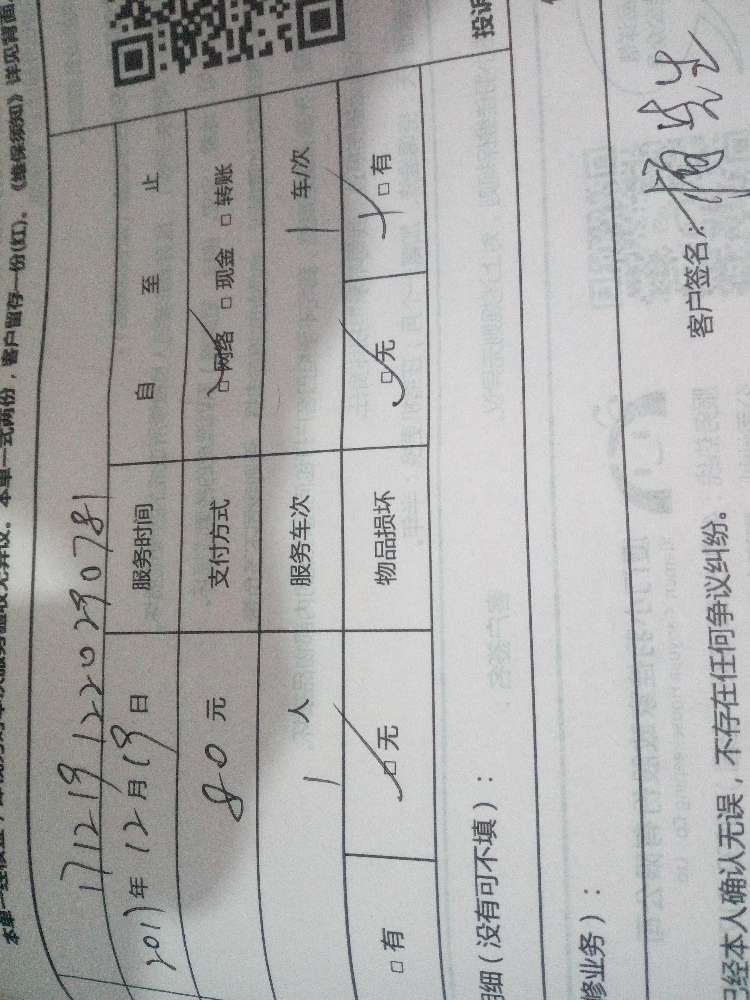 本单一式两份,客户留存一份(红)。《维保须知》详见背面
171219122029078​1
2017年12月19日 服务时间 自 至 止
80元 支付方式 ☑网络 □现金 □转账
1人 服务车次 1车/次
□有 ☑无 物品损坏 ☑无 □有
投诉
细(没有可不填):
修业务):
已经本人确认无误,不存在任何争议纠纷。 客户签名:顾先生